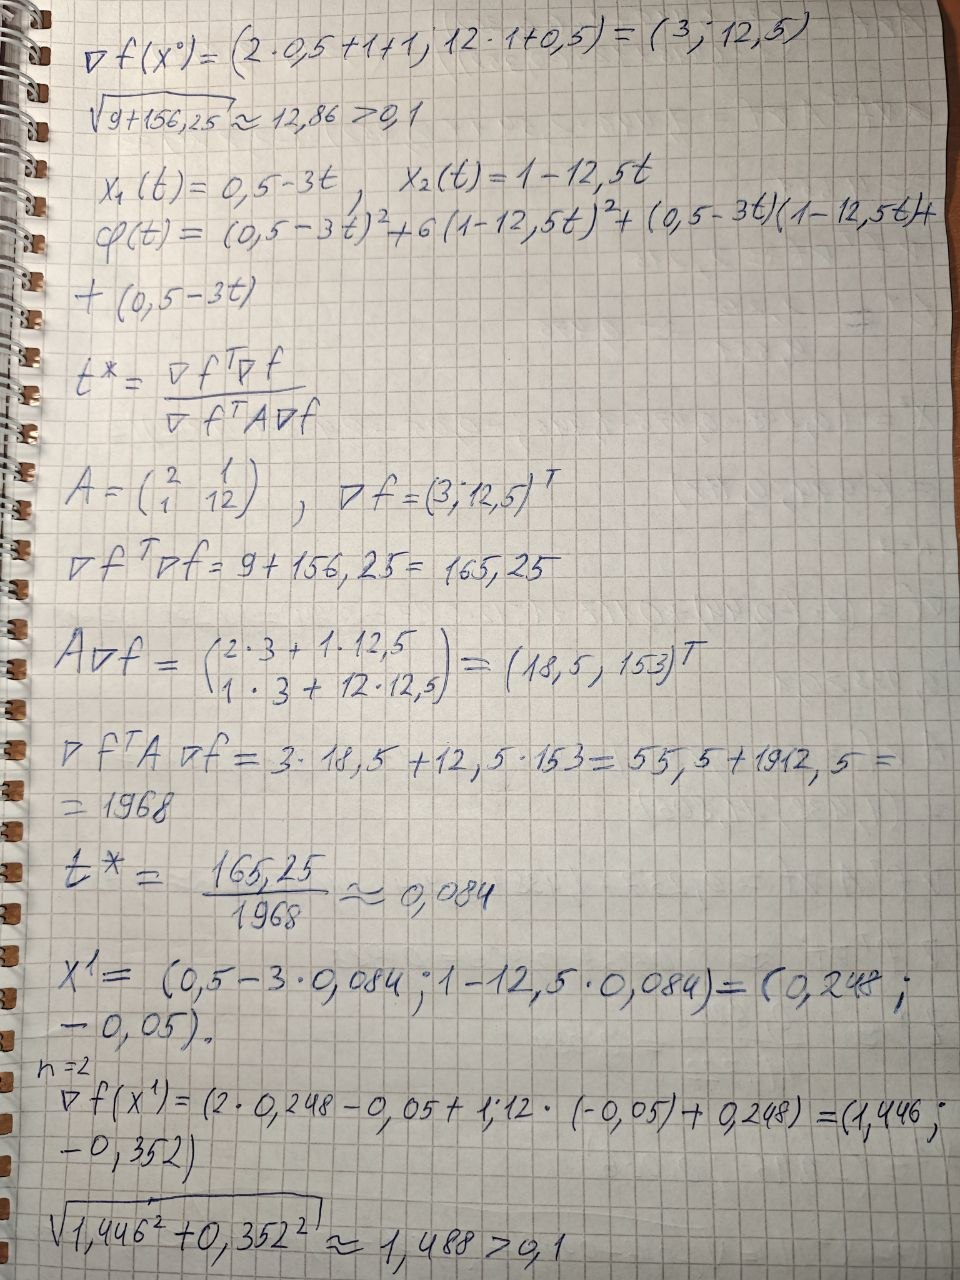 ∇f(x⁰) = (2·0,5+1+1; 12·1+0,5) = (3; 12,5)
√(9+156,25) ≈ 12,86 > 0,1
x₁(t) = 0,5-3t, x₂(t) = 1-12,5t
φ(t) = (0,5-3t)²+6(1-12,5t)²+(0,5-3t)(1-12,5t)+
+ (0,5-3t)
t* = ∇fᵀ∇f / ∇fᵀA∇f
A = (2 1; 1 12), ∇f = (3; 12,5)ᵀ
∇fᵀ∇f = 9+156,25 = 165,25
A∇f = (2·3 + 1·12,5; 1·3 + 12·12,5) = (18,5, 153)ᵀ
∇fᵀA∇f = 3·18,5+12,5·153 = 55,5+1912,5 =
= 1968
t* = 165,25 / 1968 ≈ 0,084
x¹ = (0,5-3·0,084; 1-12,5·0,084) = (0,248;
-0,05).
n=2
∇f(x¹) = (2·0,248-0,05+1; 12·(-0,05)+0,248) = (1,446;
-0,352)
√(1,446²+0,352²) ≈ 1,488 > 0,1